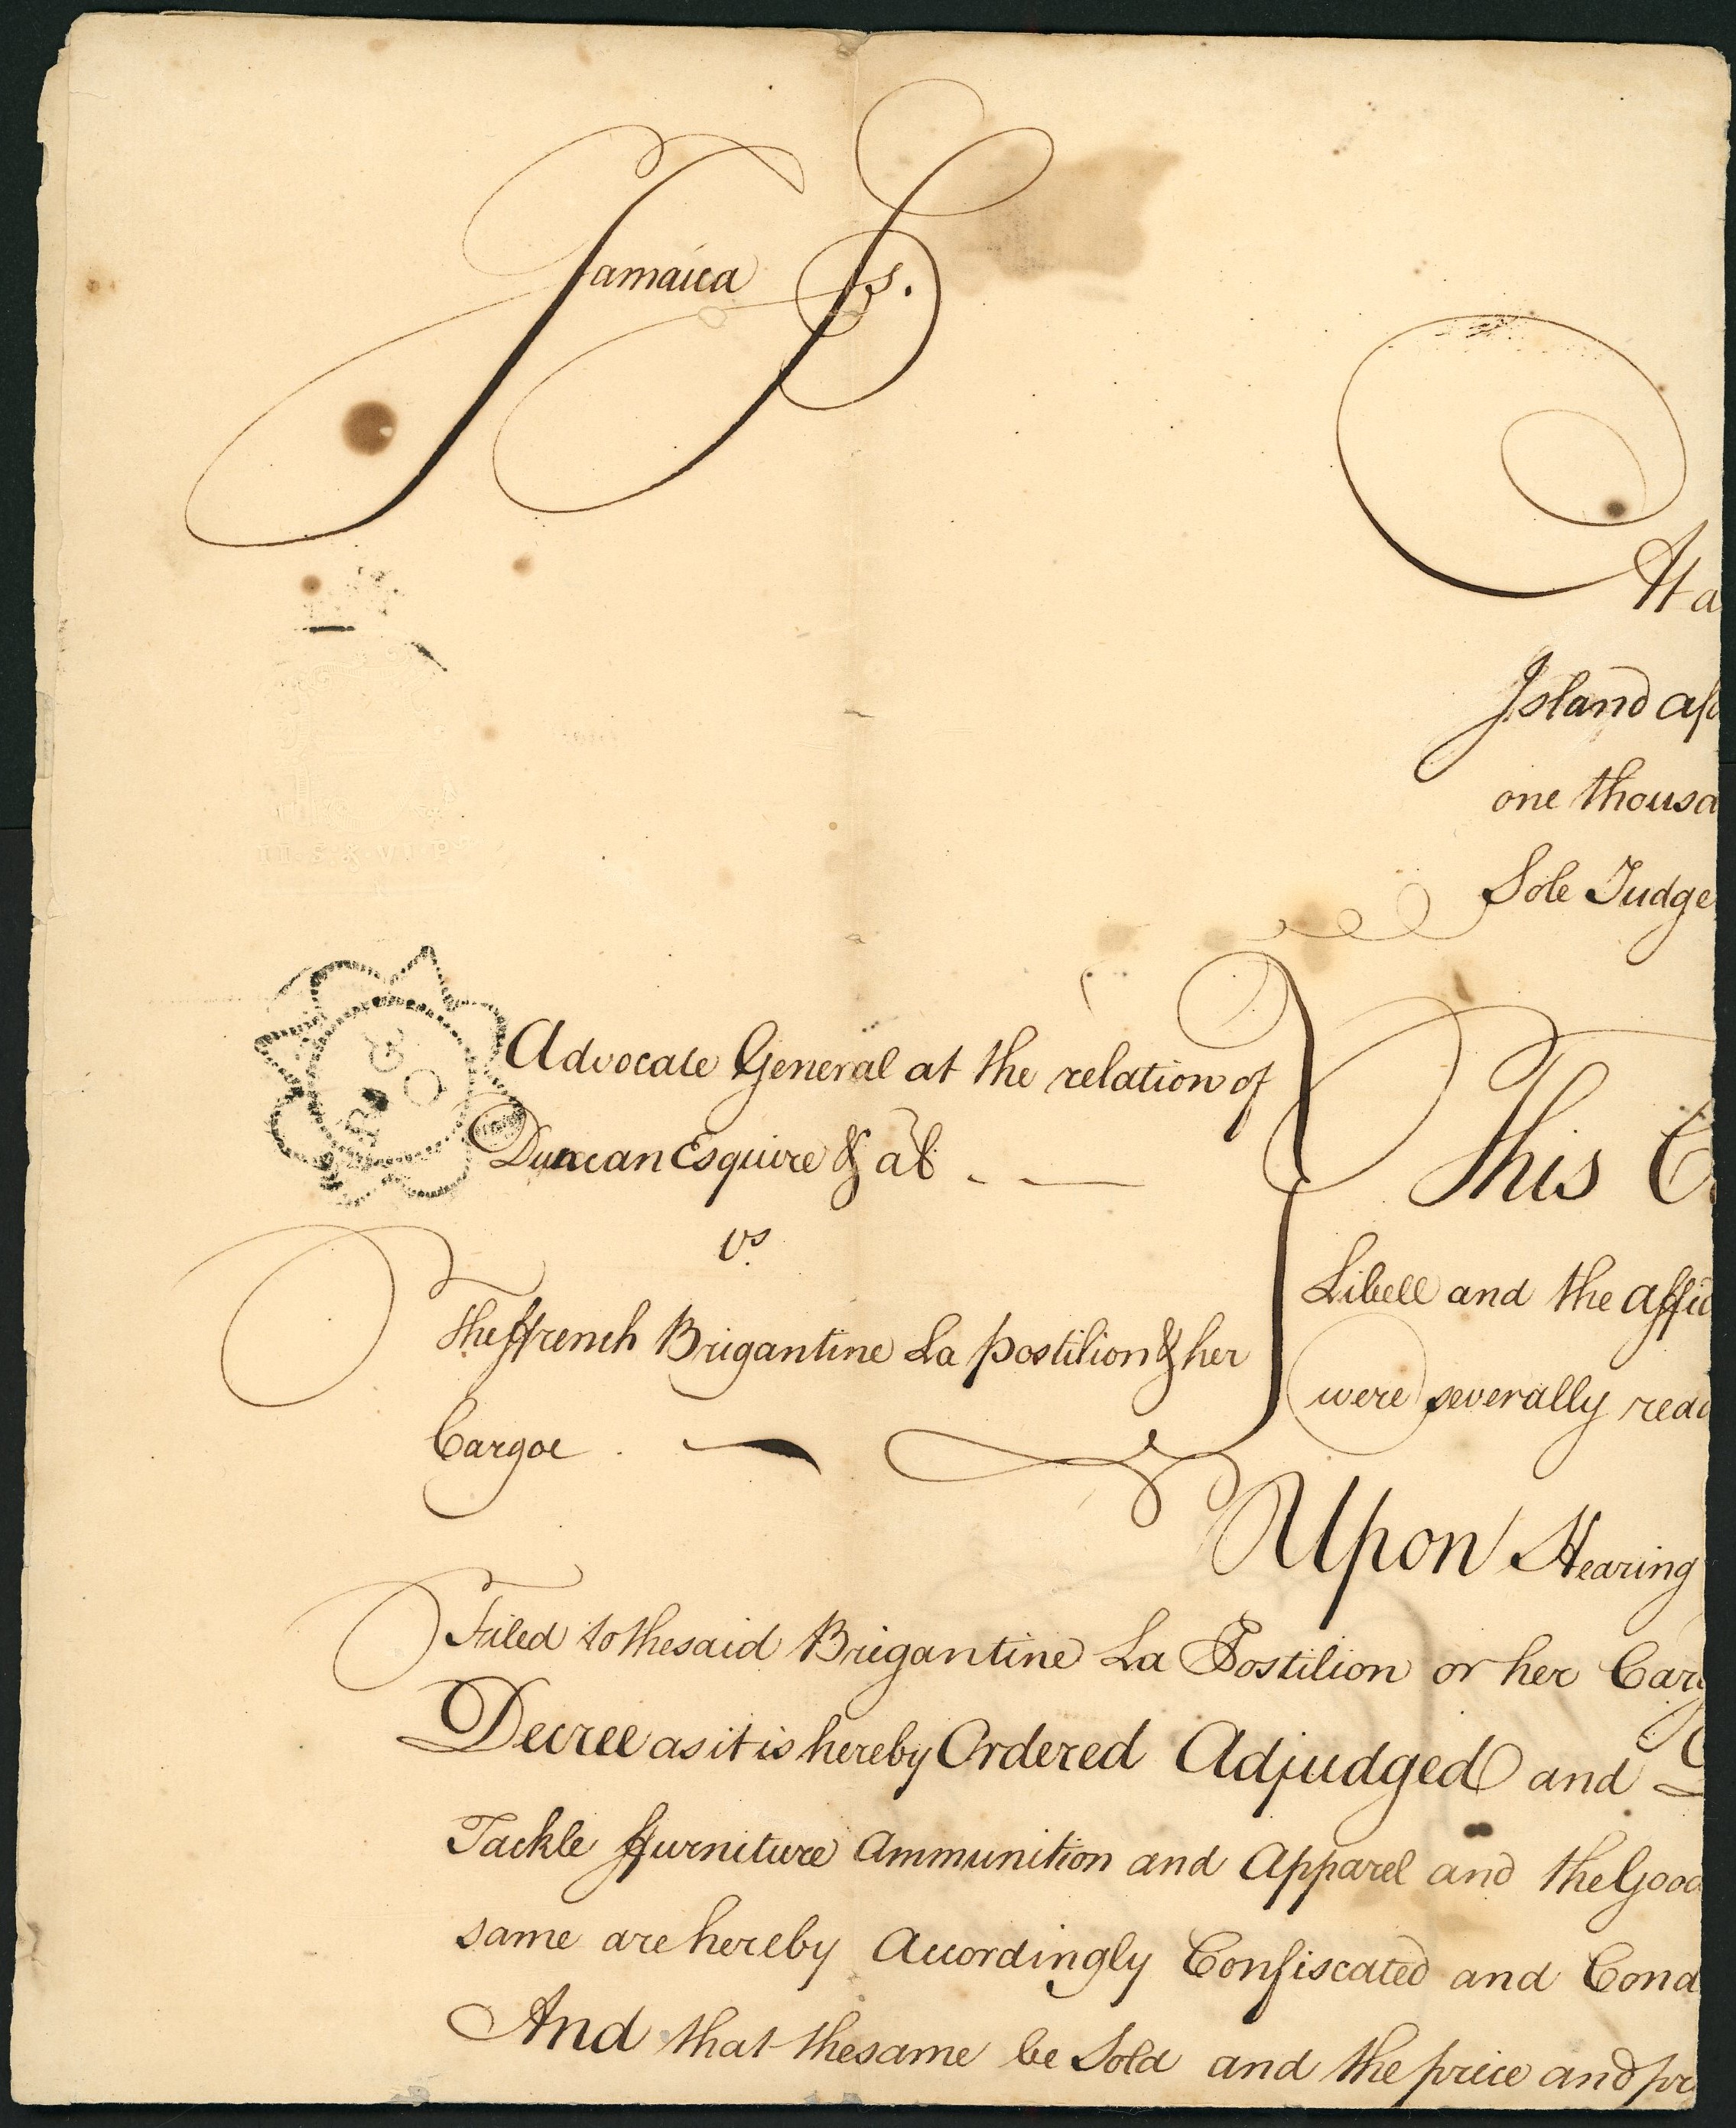 Jamaica ss.
Ha
Island afo
one thousa
Sole Judge
Advocate General at the relation of
Duncan Esquire & al
vs
The ffrench Brigantine La postilion & her
Cargoe
This C
Libell and the affid
were severally read
Upon Hearing
Filed to the said Brigantine La Postilion or her Carg
Decree as it is hereby Ordered Adjudged and D
Tackle ffurniture Ammunition and Apparel and the Good
same are hereby Accordingly Confiscated and Cond
And that the same be Sold and the price and pr
II. S. & VI. P
R G